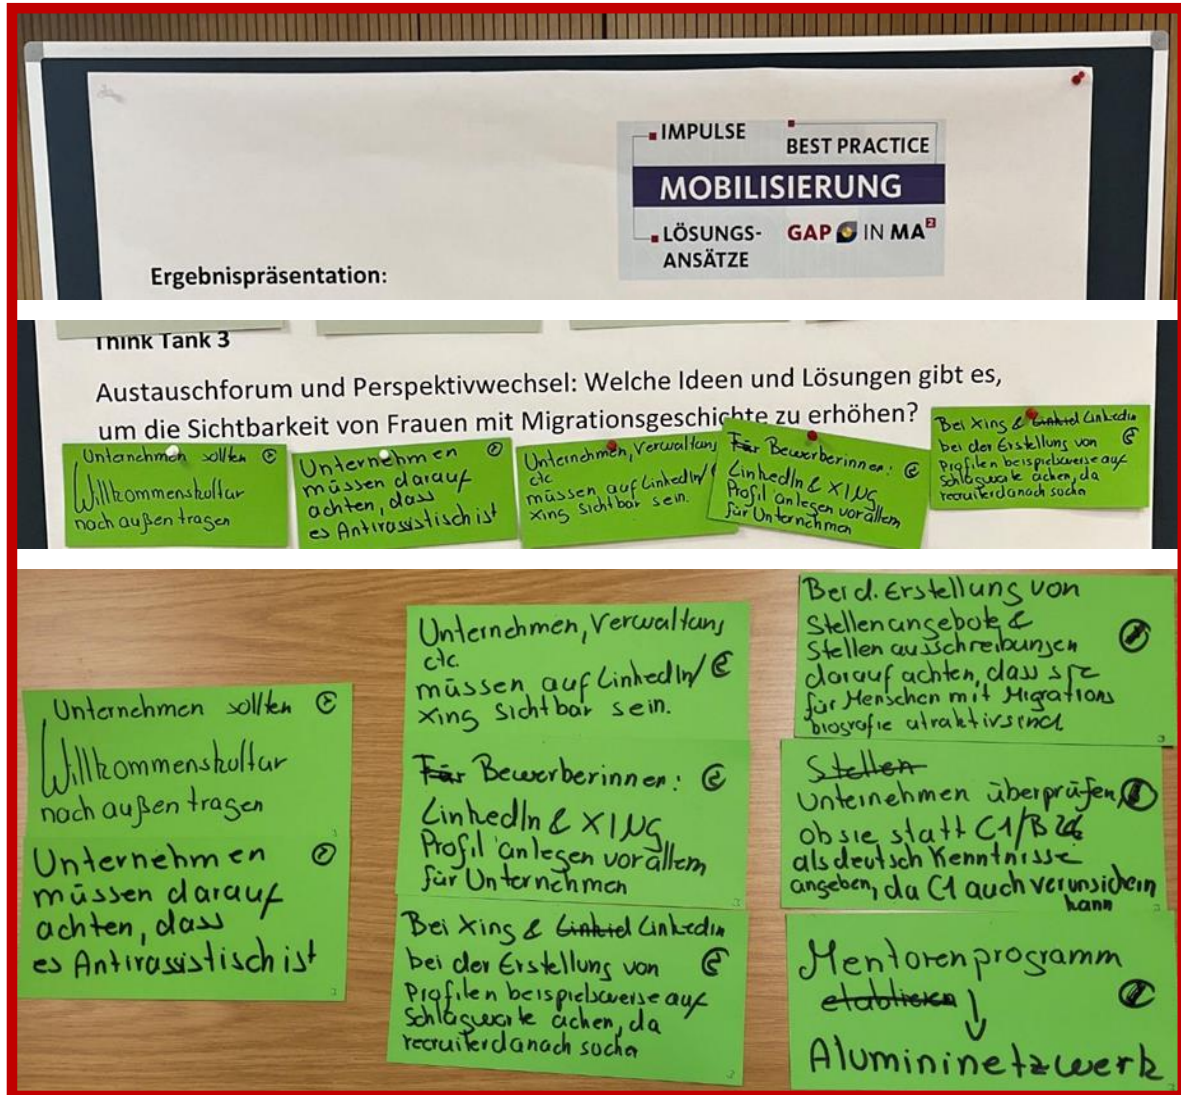 IMPULSE
BEST PRACTICE
MOBILISIERUNG
LÖSUNGS-
ANSÄTZE
GAP IN MA²
Ergebnispräsentation:
Think Tank 3
Austauschforum und Perspektivwechsel: Welche Ideen und Lösungen gibt es,
um die Sichtbarkeit von Frauen mit Migrationsgeschichte zu erhöhen?
Unternehmen sollten
Willkommenskultur
nach außen tragen
Unternehmen
müssen darauf
achten, dass
es Antirassistisch ist
Unternehmen, Verwaltung
etc.
müssen auf LinkedIn/
Xing sichtbar sein.
Für Bewerberinnen:
LinkedIn & XING
Profil anlegen vor allem
für Unternehmen
Bei Xing & Linkiel Linkedin
bei der Erstellung von
Profilen beispielsweise auf
Schlagworte achen, da
recruiter danach suchen
Unternehmen sollten
Willkommenskultur
nach außen tragen
Unternehmen
müssen darauf
achten, dass
es Antirassistisch ist
Unternehmen, Verwaltung
etc.
müssen auf LinkedIn/
Xing sichtbar sein.
Für Bewerberinnen:
LinkedIn & XING
Profil anlegen vor allem
für Unternehmen
Bei Xing & Linkiel Linkedin
bei der Erstellung von
Profilen beispielsweise auf
Schlagworte achen, da
recruiter danach suchen
Bei d. Erstellung von
Stellenangebote &
Stellenausschreibungen
darauf achten, dass sie
für Menschen mit Migrations
biografie atraktiv sind
Stellen
Unternehmen überprüfen,
ob sie statt C1/B2
als deutsch Kenntnisse
angeben, da C1 auch verunsichern
kann
Mentorenprogramm
etablieren
Alumininetzwerk